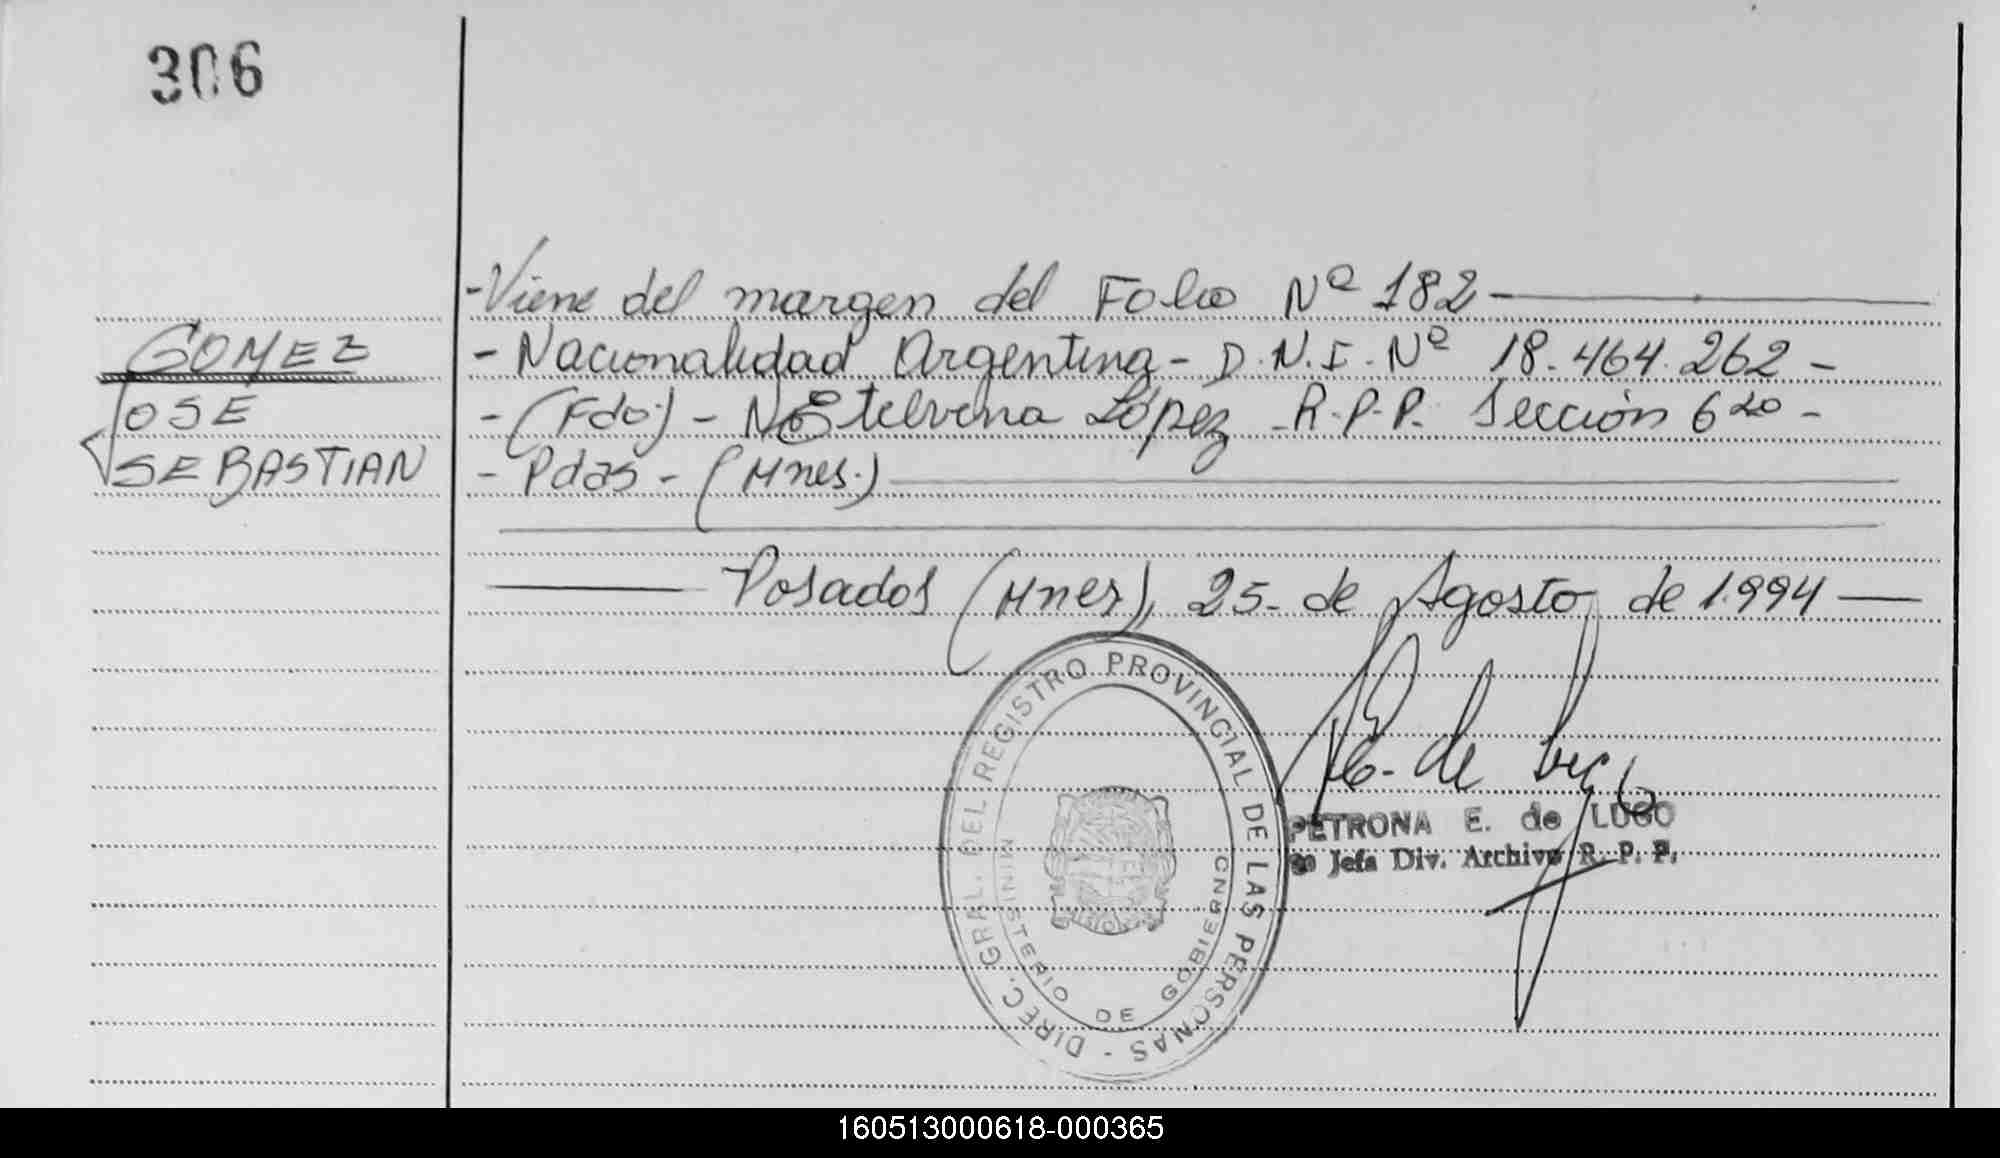 306
-Viene del margen del Folio Nº 182
GOMEZ
JOSE
SEBASTIAN
- Nacionalidad Argentina - D.N.I. Nº 18.464.262 -
- (Fdo:) - N. Etelvina López - R.P.P. Sección 6ta -
- Pdas - (Mnes.)
Posadas (Mnes), 25 - de Agosto de 1.994
DIREC. GRAL. DEL REGISTRO PROVINCIAL DE LAS PERSONAS -
MINISTERIO DE GOBIERNO
P. E. de Lugo
PETRONA E. de LUGO
Jefa Div. Archivo R. P. P.
160513000618-000365